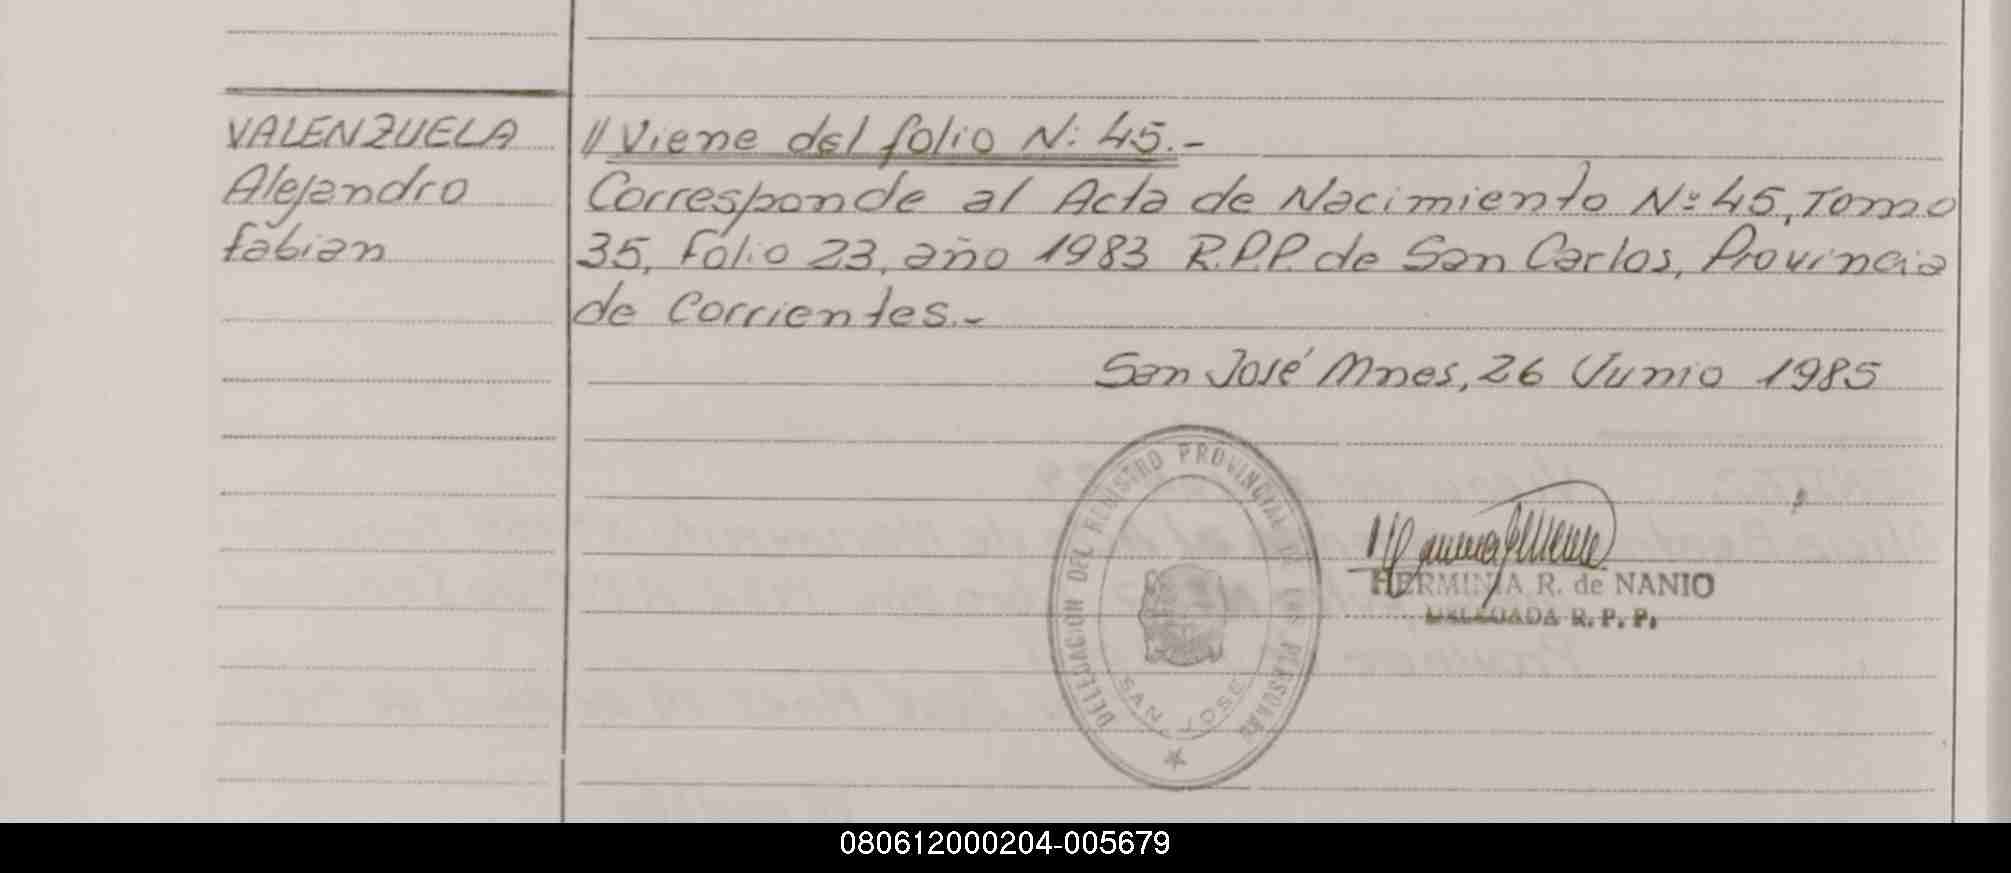 VALENZUELA
Alejandro
fabian
// Viene del folio N: 45.-
Corresponde al Acta de Nacimiento Nº 45, Tomo
35, Folio 23, año 1983 R.P.P. de San Carlos, Provincia
de Corrientes.-
San José Mnes, 26 Junio 1985
DELEGACION DEL REGISTRO PROVINCIAL DE LAS PERSONAS
SAN JOSE
HERMINIA R. de NANIO
DELEGADA R. P. P.
080612000204-005679